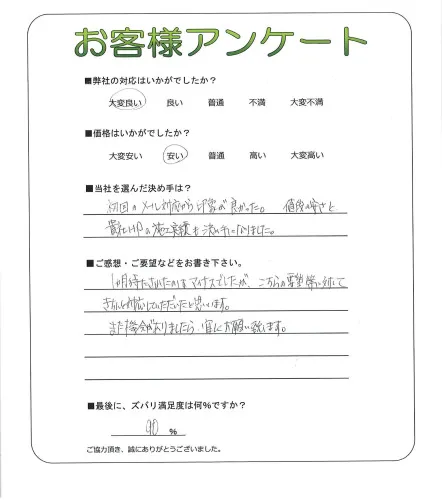 お客様アンケート
■弊社の対応はいかがでしたか？
大変良い 良い 普通 不満 大変不満
■価格はいかがでしたか？
大変安い 安い 普通 高い 大変高い
■当社を選んだ決め手は？
初回のメール対応から印象が良かった。 値段の安さと
貴社HPの施工実績も決め手になりました。
■ご感想・ご要望などをお書き下さい。
1ヶ月待たされたのはマイナスでしたが、こちらの要望等に対して
きちんと対応していただいたと思います。
また機会がありましたら、宜しくお願い致します。
■最後に、ズバリ満足度は何%ですか？
90 %
ご協力頂き、誠にありがとうございました。